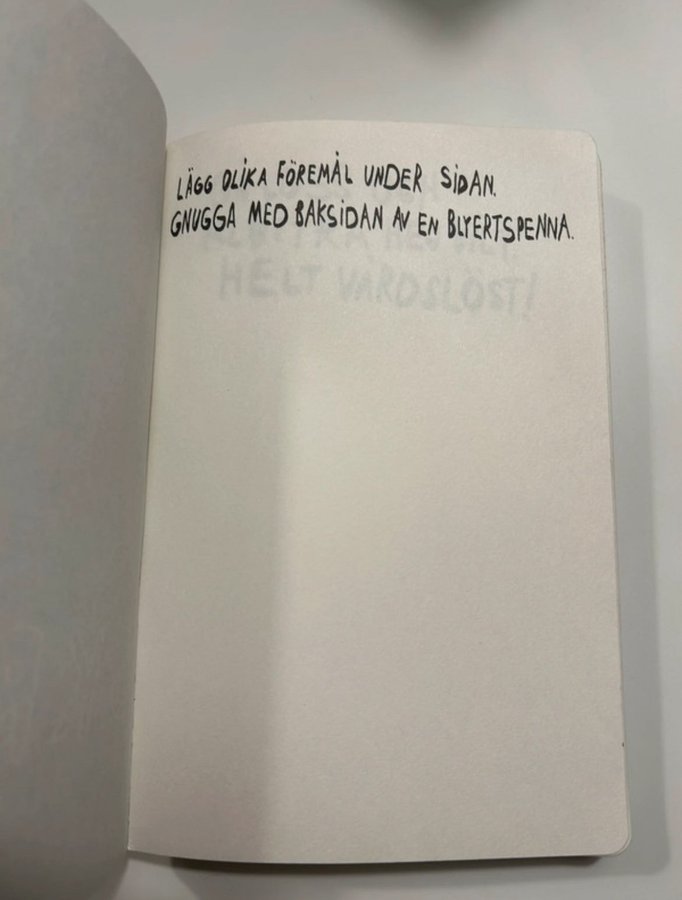 LÄGG OLIKA FÖREMÅL UNDER SIDAN.
GNUGGA MED BAKSIDAN AV EN BLYERTSPENNA.
HELT VÅRDSLÖST!